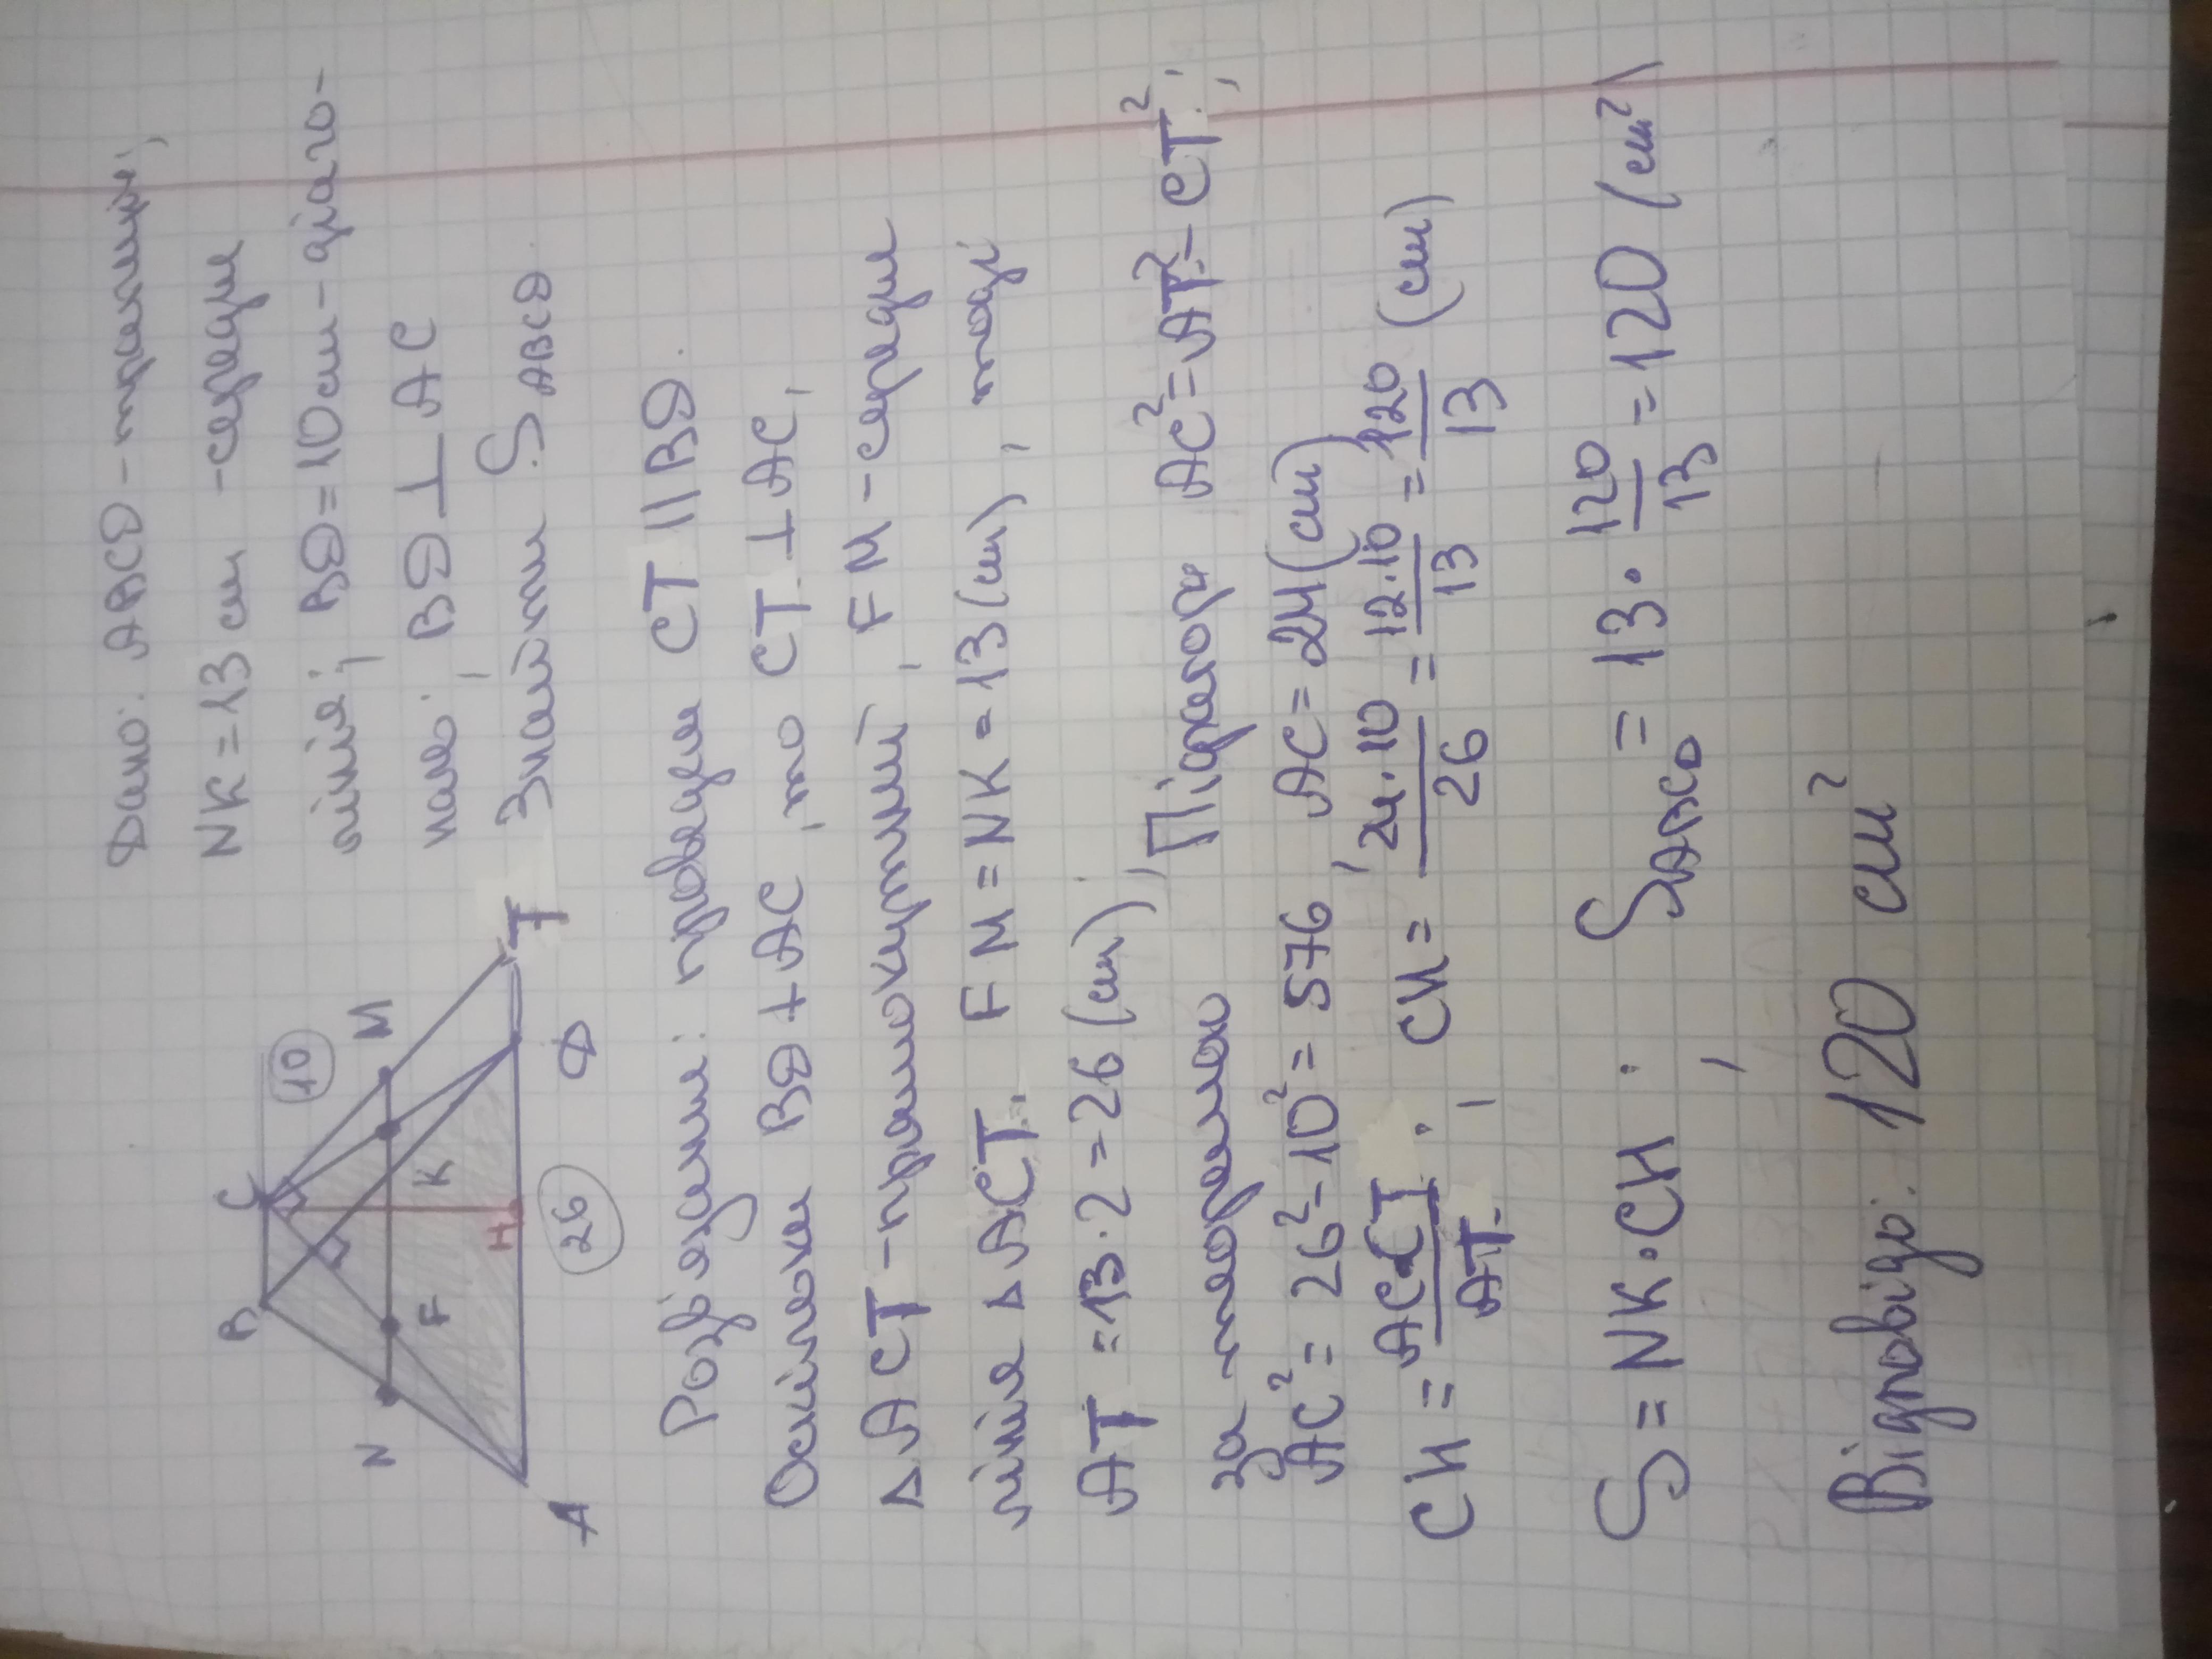 Дано: ABCD - трапеція;
NK = 13 см - середня
лінія; BD = 10 см - діаго-
наль; BD ⊥ AC
Знайти S ABCD.
B C 10 M
N F K
A 26 H D T
Розв'язання: проведем CT || BD.
Оскільки BD ⊥ AC, то CT ⊥ AC,
△ ACT - прямокутний, FM - середня
лінія △ ACT. FM = NK = 13 (см), тоді
AT = 13 · 2 = 26 (см);
за теоремою Піфагора AC² = AT² - CT²;
AC² = 26² - 10² = 576, AC = 24 (см)
CH = AC·CT / AT; CH = 24·10 / 26 = 12·10 / 13 = 120 / 13 (см)
S = NK · CH; S ABCD = 13 · 120 / 13 = 120 (см²)
Відповідь: 120 см²